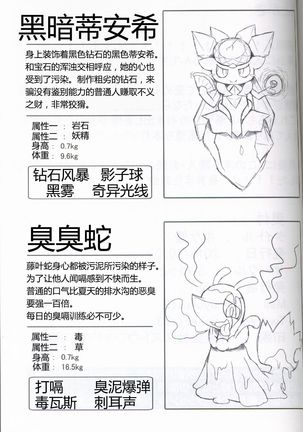 黑暗蒂安希
身上装饰着黑色钻石的黑色蒂安希。
和宝石的浑浊交相呼应，她的心也
受到了污染。制作粗劣的钻石，来
骗没有鉴别能力的普通人赚取不义
之财，非常狡猾。
属性一 ： 岩石
属性二 ： 妖精
身高： 0.7kg
体重： 9.6kg
钻石风暴 影子球
黑雾 奇异光线
臭臭蛇
藤叶蛇身心都被污泥所污染的样子。
为了让他人闻嗝感到不快而生。
普通的口气比夏天的排水沟的恶臭
要强一百倍。
每日的臭嗝训练必不可少。
属性一 ： 毒
属性二 ： 草
身高： 0.7kg
体重： 16.5kg
打嗝 臭泥爆弹
毒瓦斯 刺耳声